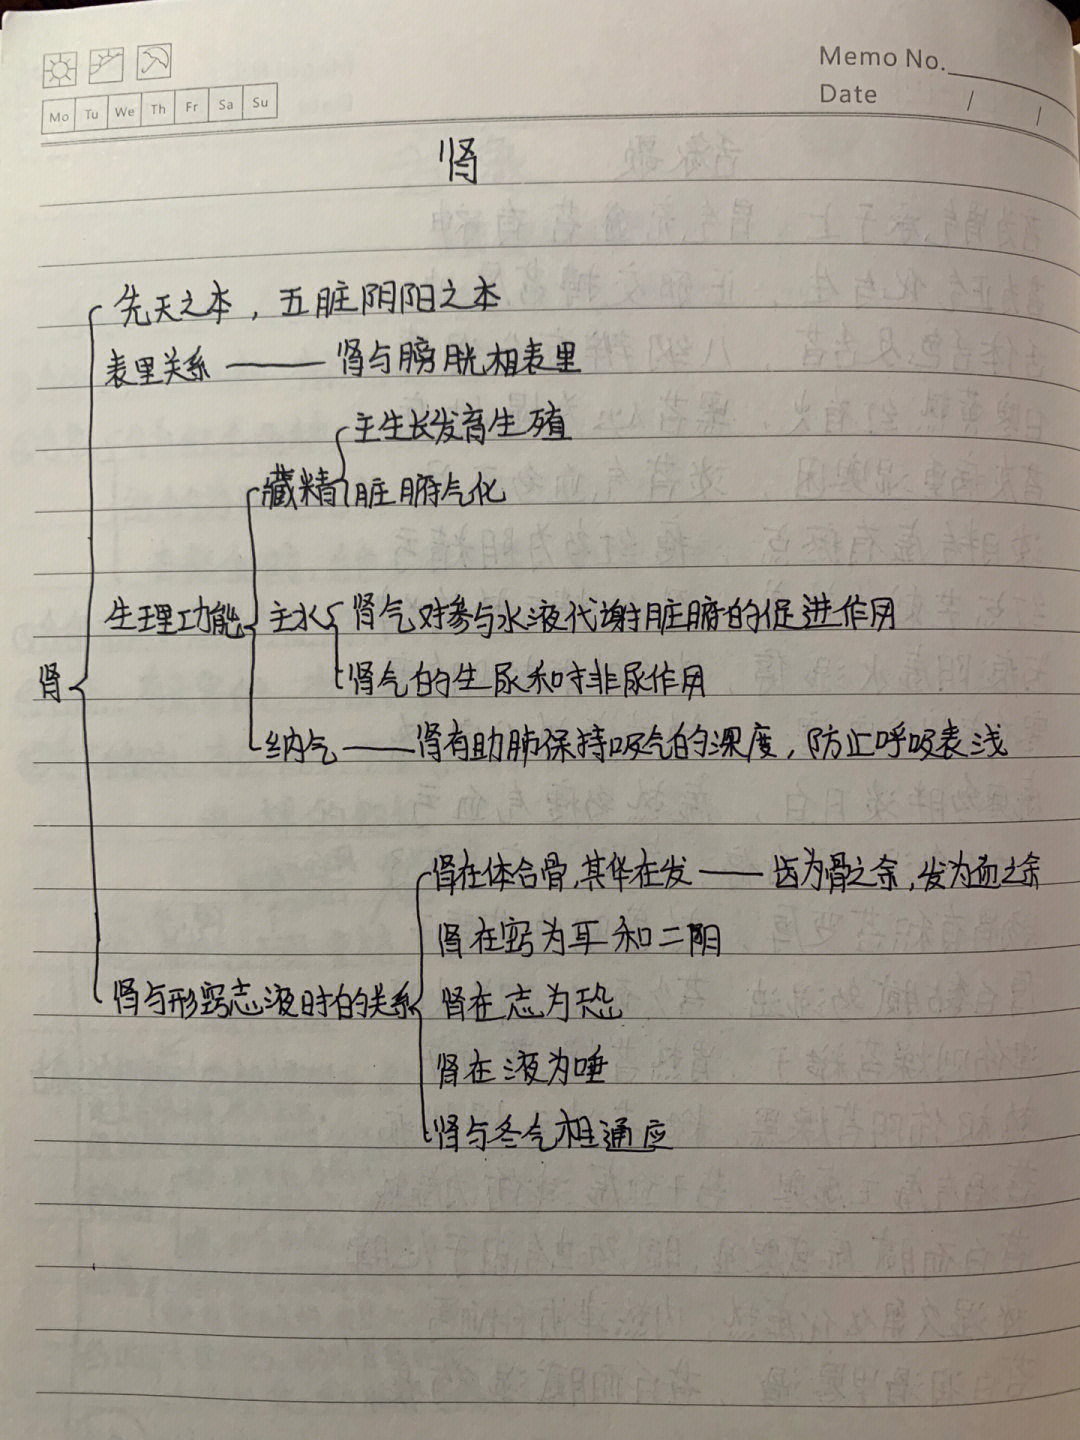 Memo No.
Date / /
Mo Tu We Th Fr Sa Su
肾
先天之本，五脏阴阳之本
表里关系 —— 肾与膀胱相表里
主生长发育生殖
藏精
脏腑气化
生理功能
主水
肾气对参与水液代谢脏腑的促进作用
肾
肾气的生尿和排尿作用
纳气 —— 肾有助肺保持吸气的深度，防止呼吸表浅
肾在体合骨，其华在发 —— 齿为骨之余，发为血之余
肾在窍为耳和二阴
肾与形窍志液时的关系
肾在志为恐
肾在液为唾
肾与冬气相通应